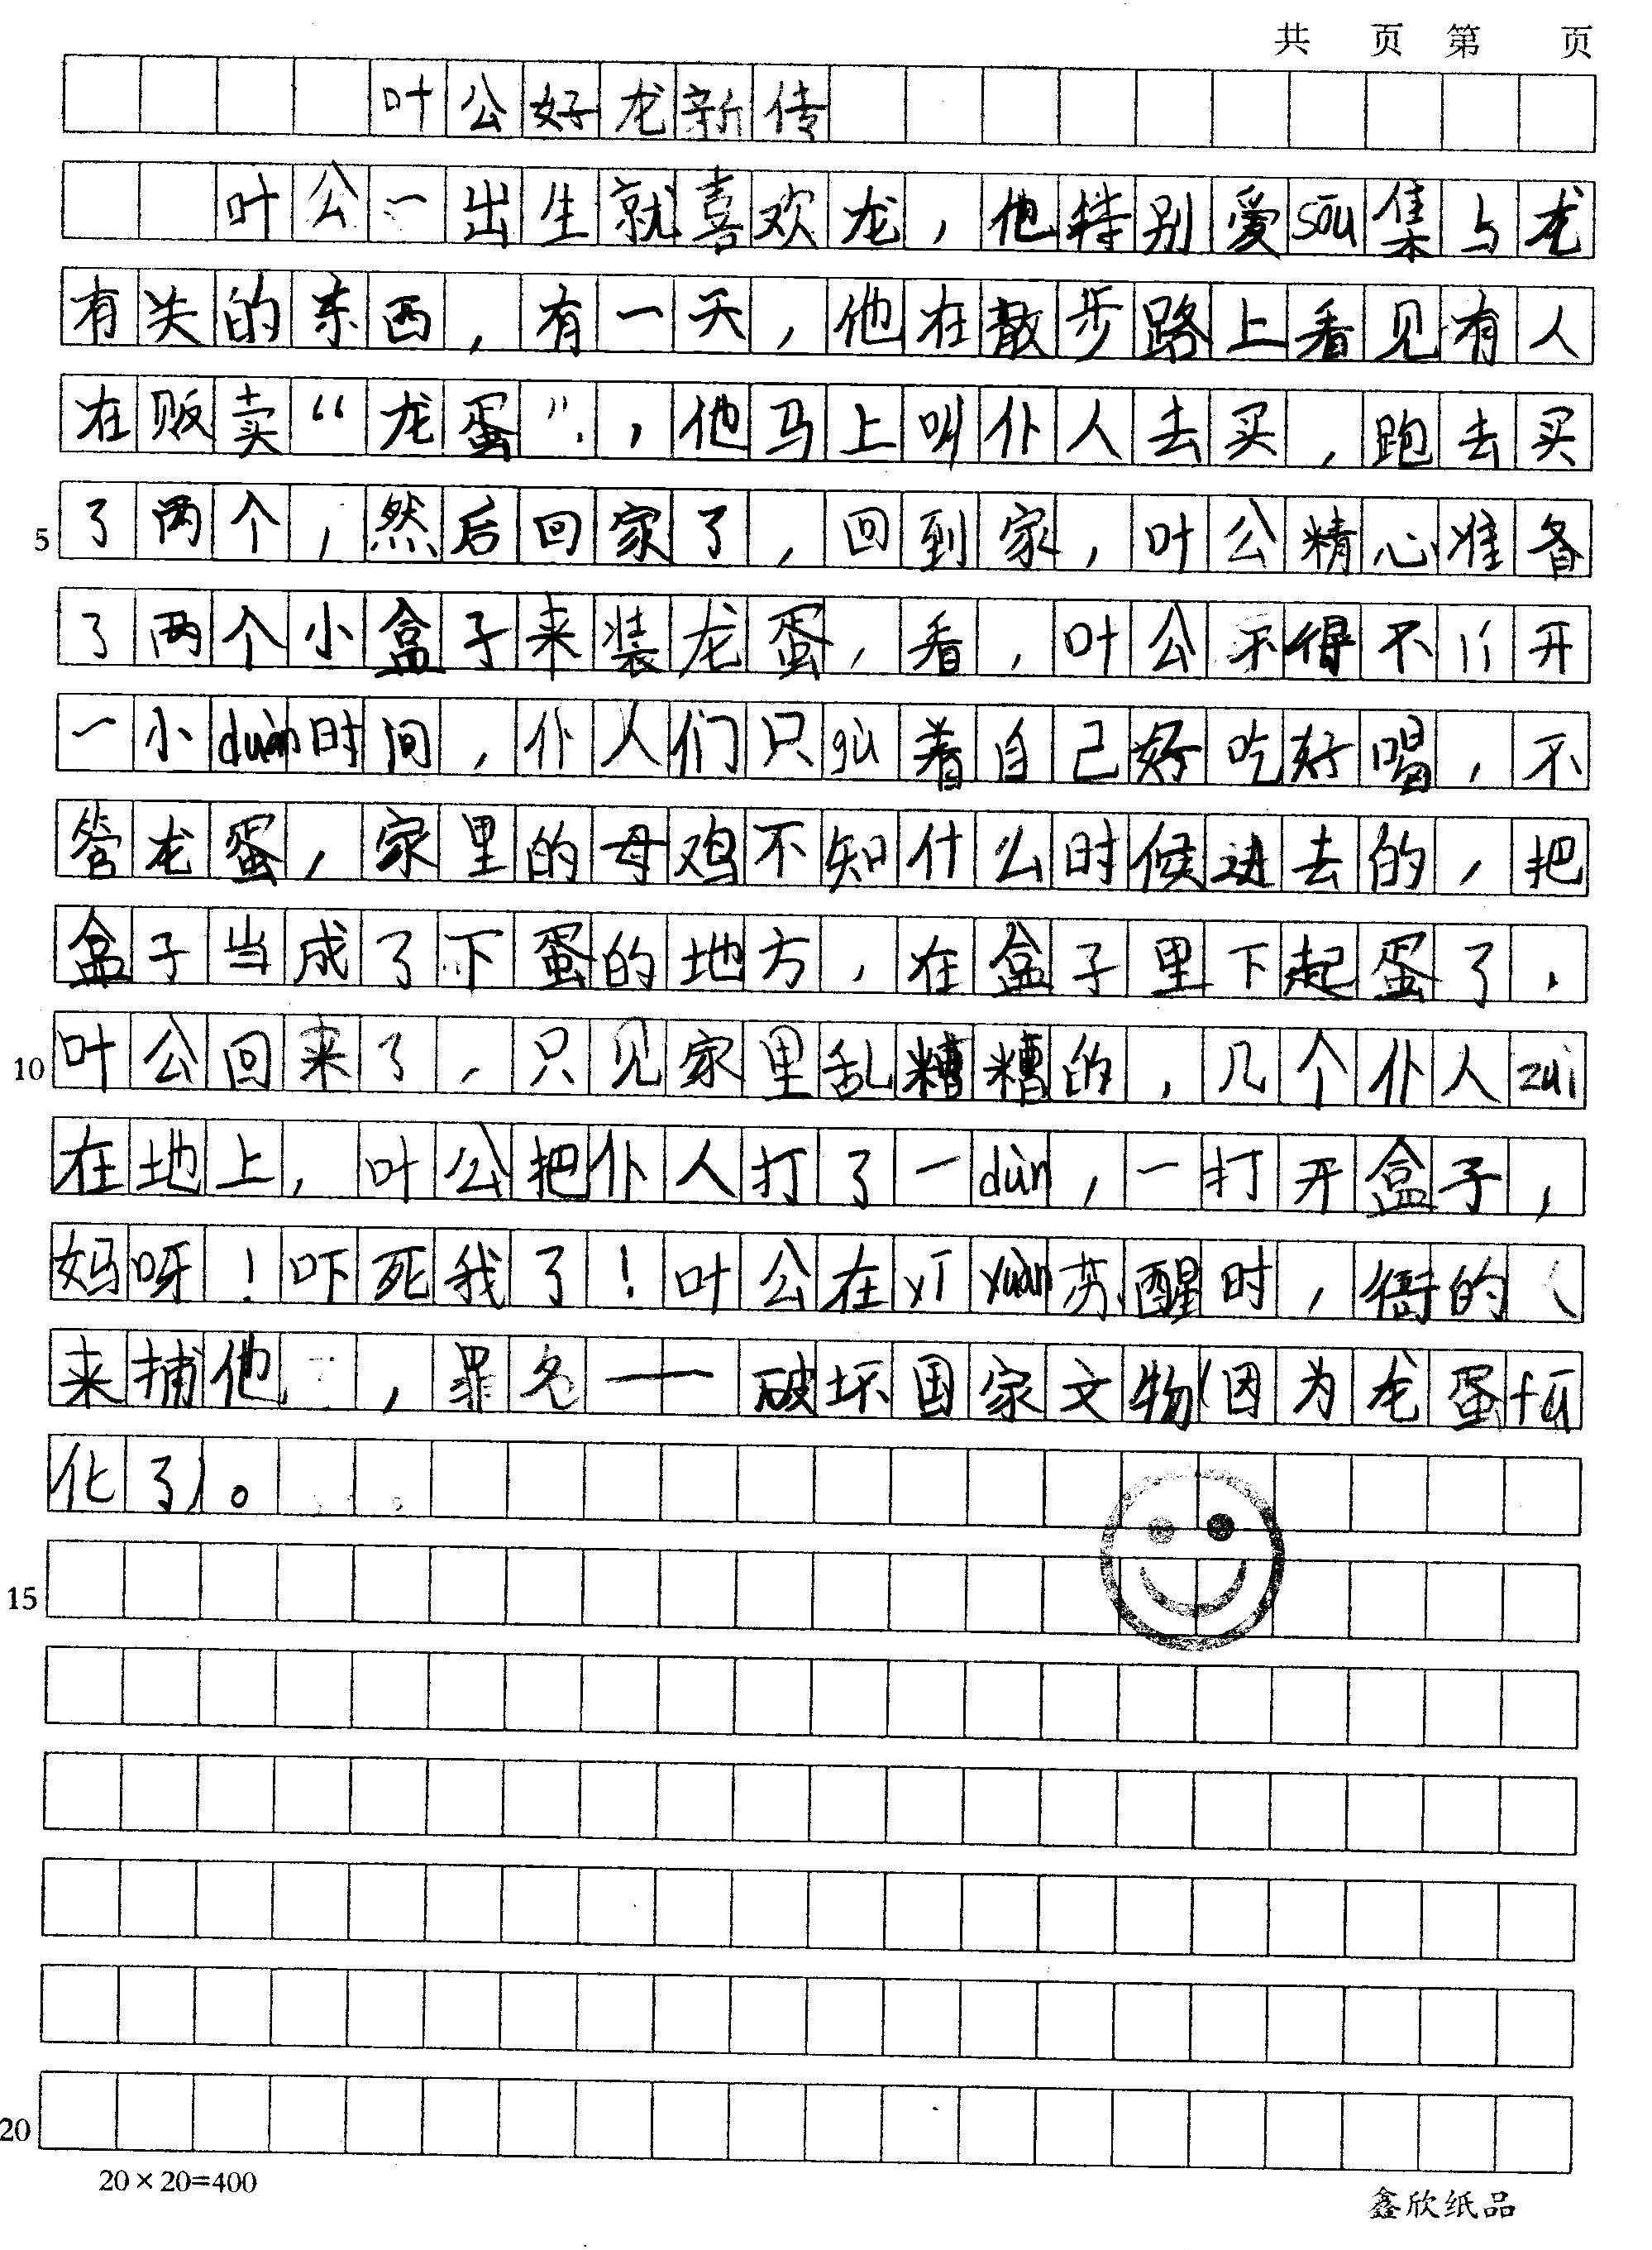 共 页 第 页
叶公好龙新传
叶公一出生就喜欢龙，他特别爱sōu集与龙
有关的东西，有一天，他在散步路上看见有人
在贩卖“龙蛋”，他马上叫仆人去买，跑去买
5 了两个，然后回家了，回到家，叶公精心准备
了两个小盒子来装龙蛋，看，叶公不得不开
一小duàn时间，仆人们只gù着自己好吃好喝，不
管龙蛋，家里的母鸡不知什么时候进去的，把
盒子当成了下蛋的地方，在盒子里下起蛋了，
10 叶公回来了，只见家里乱糟糟的，几个仆人zuì
在地上，叶公把仆人打了一dùn，一打开盒子，
妈呀！吓死我了！叶公在yī yuàn苏醒时，衙的
来捕他，罪名——破坏国家文物（因为龙蛋fū
化了）。
15
20
20×20=400
鑫欣纸品